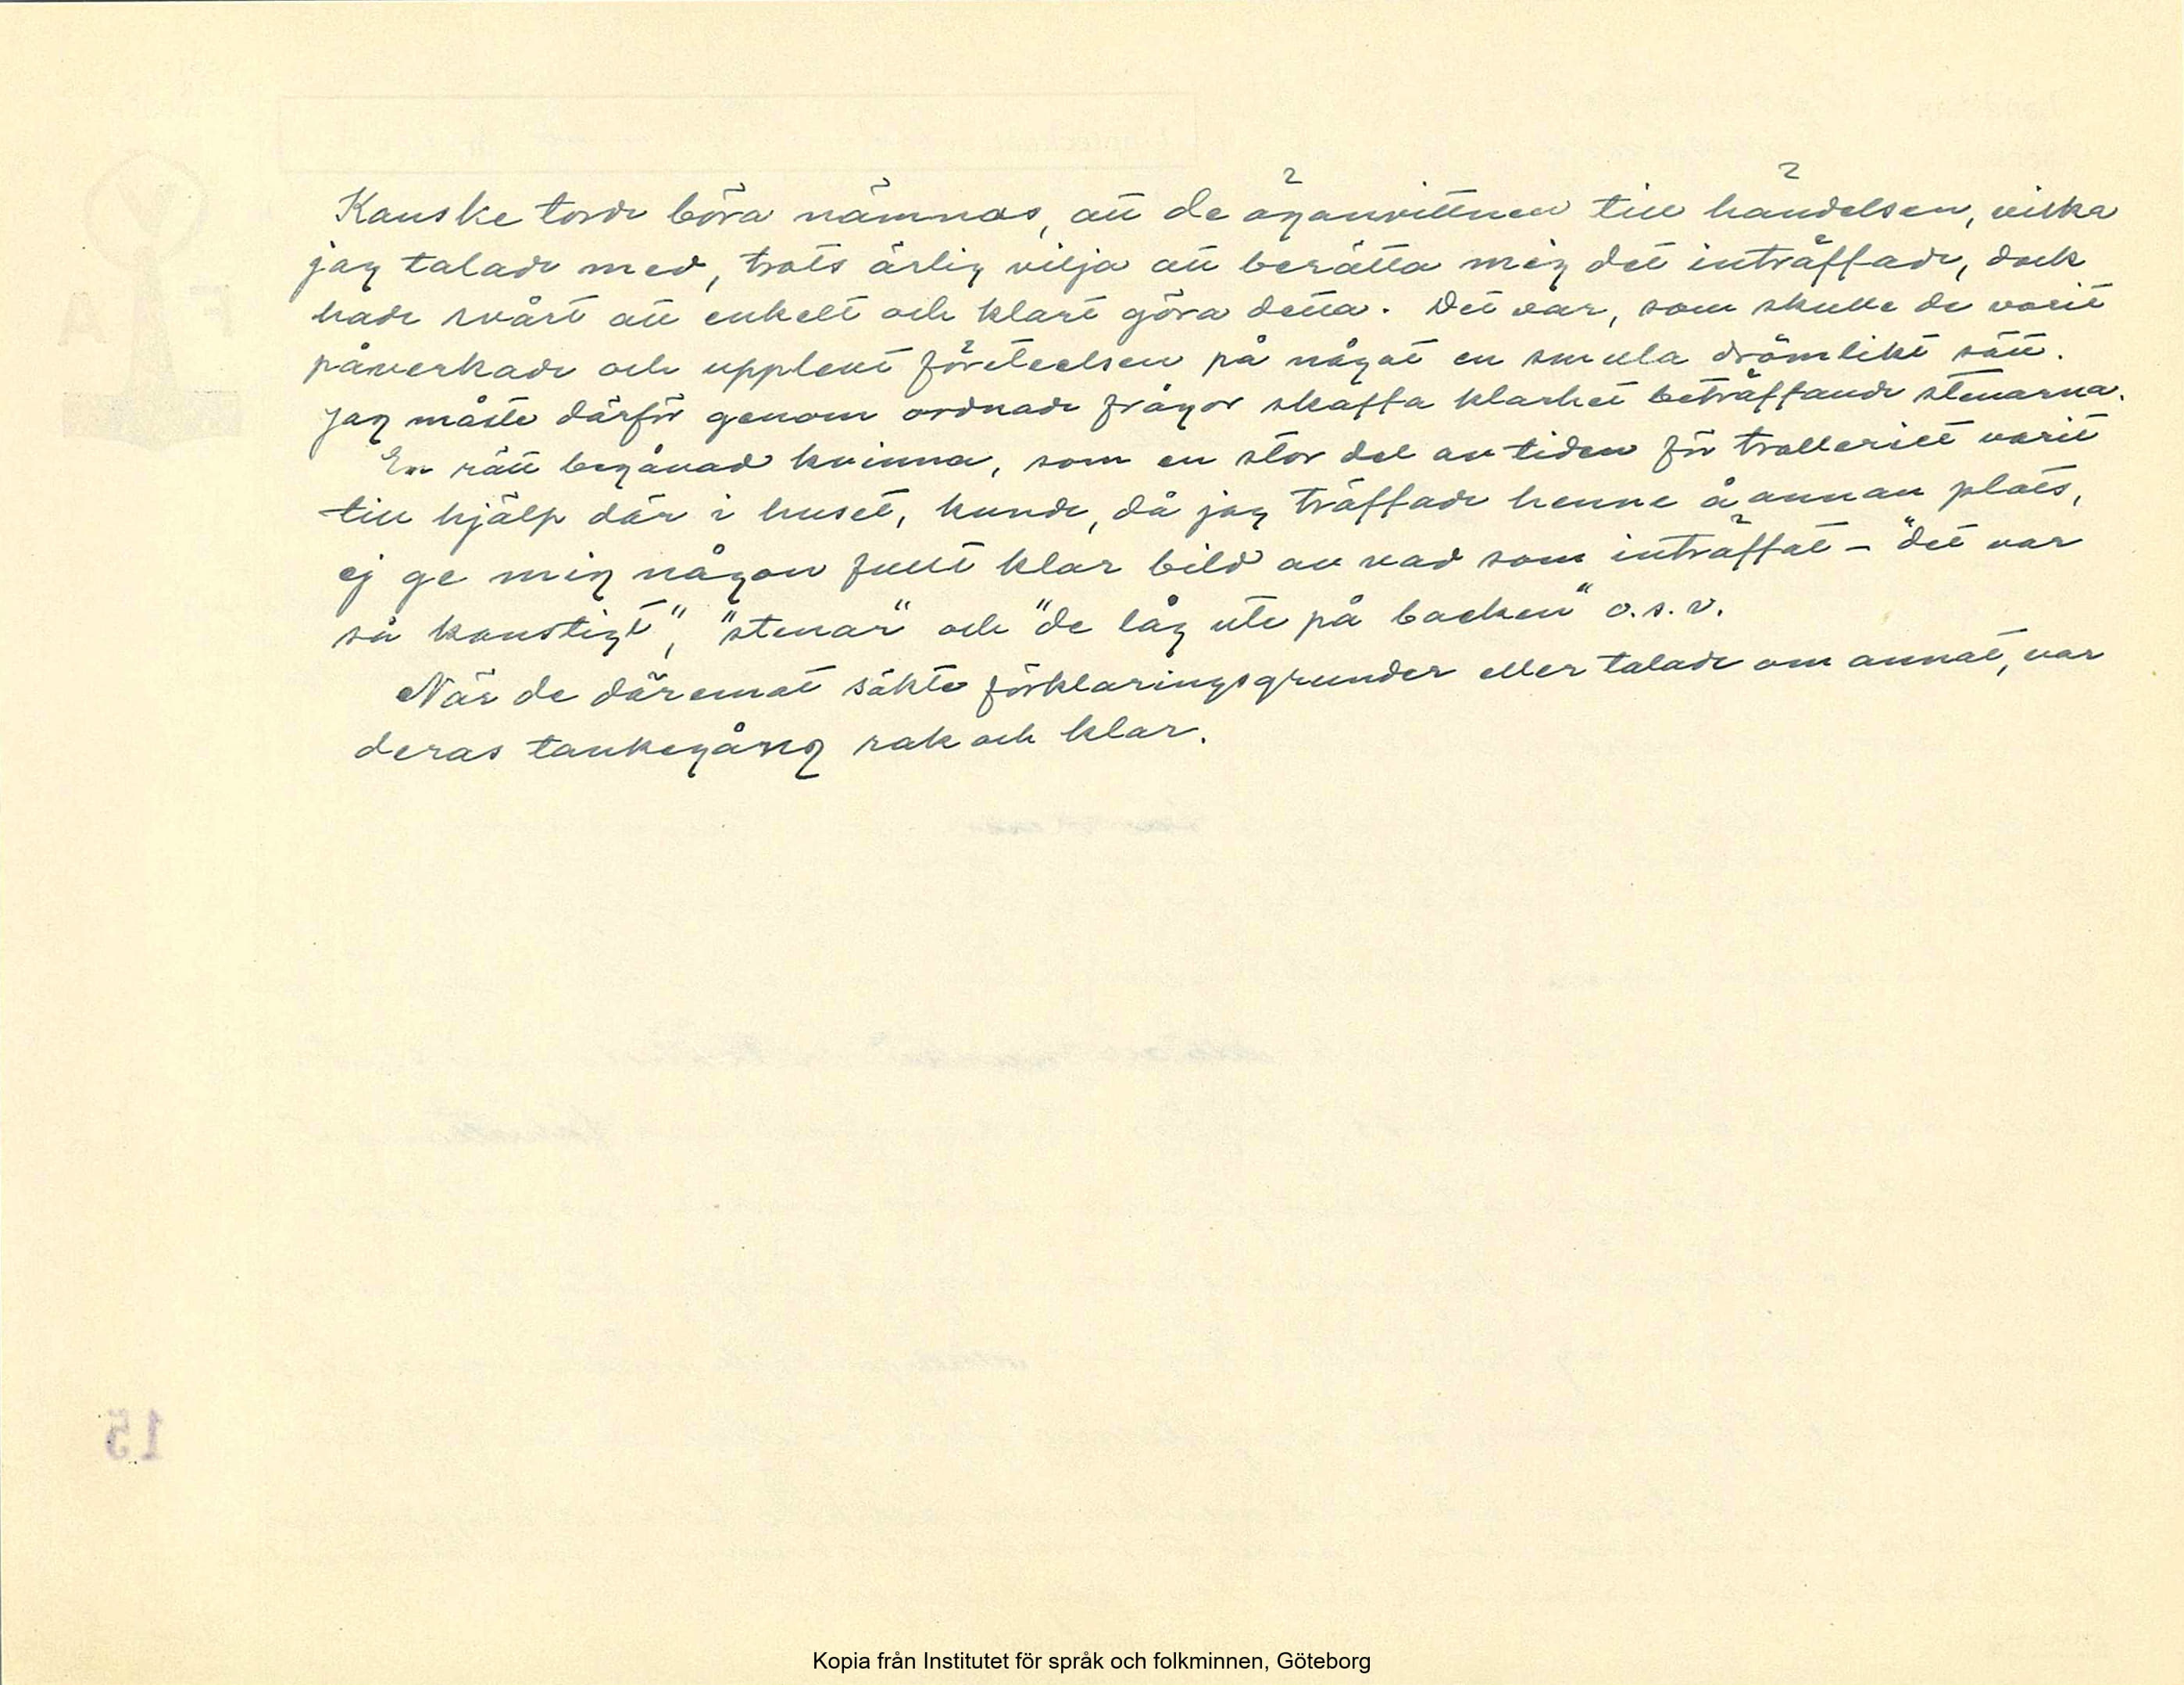 Kanske torde böra nämnas, att de ögonvittnen till händelsen, vilka
jag talade med, trots ärlig vilja att berätta mig det inträffade, dock
hade svårt att enkelt och klart göra detta. Det var, som skulle de varit
påverkade och upplevt företeelsen på något en smula drömlikt sätt.
Jag måste därför genom ordnade frågor skaffa klarhet beträffande stenarna.
En rätt begåvad kvinna, som en stor del av tiden för trolleriet varit
till hjälp där i huset, kunde, då jag träffade henne å annan plats,
ej ge mig någon fullt klar bild av vad som inträffat – "det var
så konstigt", "stenar" och "de låg ute på backen" o.s.v.
När de däremot sökte förklaringsgrunder eller talade om annat, var
deras tankegång rak och klar.
15
Kopia från Institutet för språk och folkminnen, Göteborg